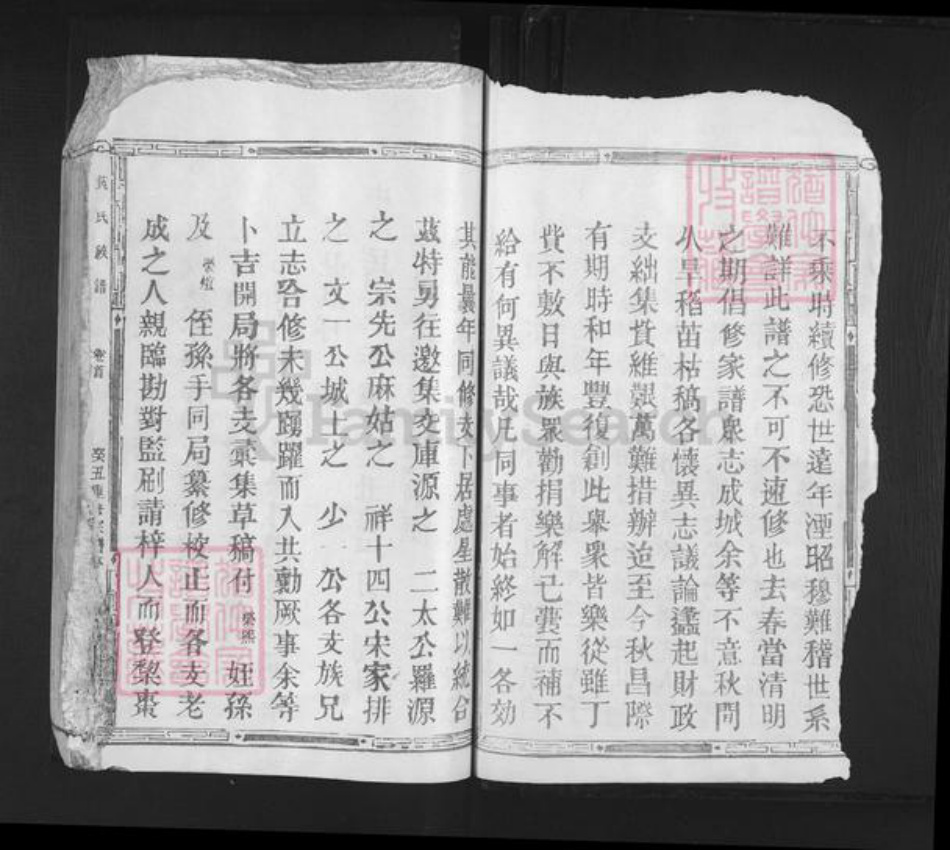 不乘時續修恐世遠年湮昭穆難稽世系
難詳此譜之不可不速修也去春當清明
之期倡修家譜衆志成城余等不意秋間
久旱稻苗枯稿各懷異志議論蠭起財政
支絀集貲維艱萬難措辦迨至今秋昌際
有期時和年豐復創此舉衆皆樂從雖丁
貲不敷日與族衆勸捐樂解己囊而補不
給有何異議哉凡同事者始終如一各効
其能曩年同修支下居處星散難以統合
茲特另往邀集交庫源之 二太公羅源
之 宗先公麻姑之 祥十四公宋家排
之 文一公城上之 少一公各支族兄
立志合修未幾踴躍而入共勷厥事余等
卜吉開局將各支彙集草稿付榮熙 姪孫
及榮煊 侄孫手同局纂修校正而各支老
成之人親臨勘對監刷請梓人而登棃棗
氏族譜 卷首 癸丑重
FamilySearch